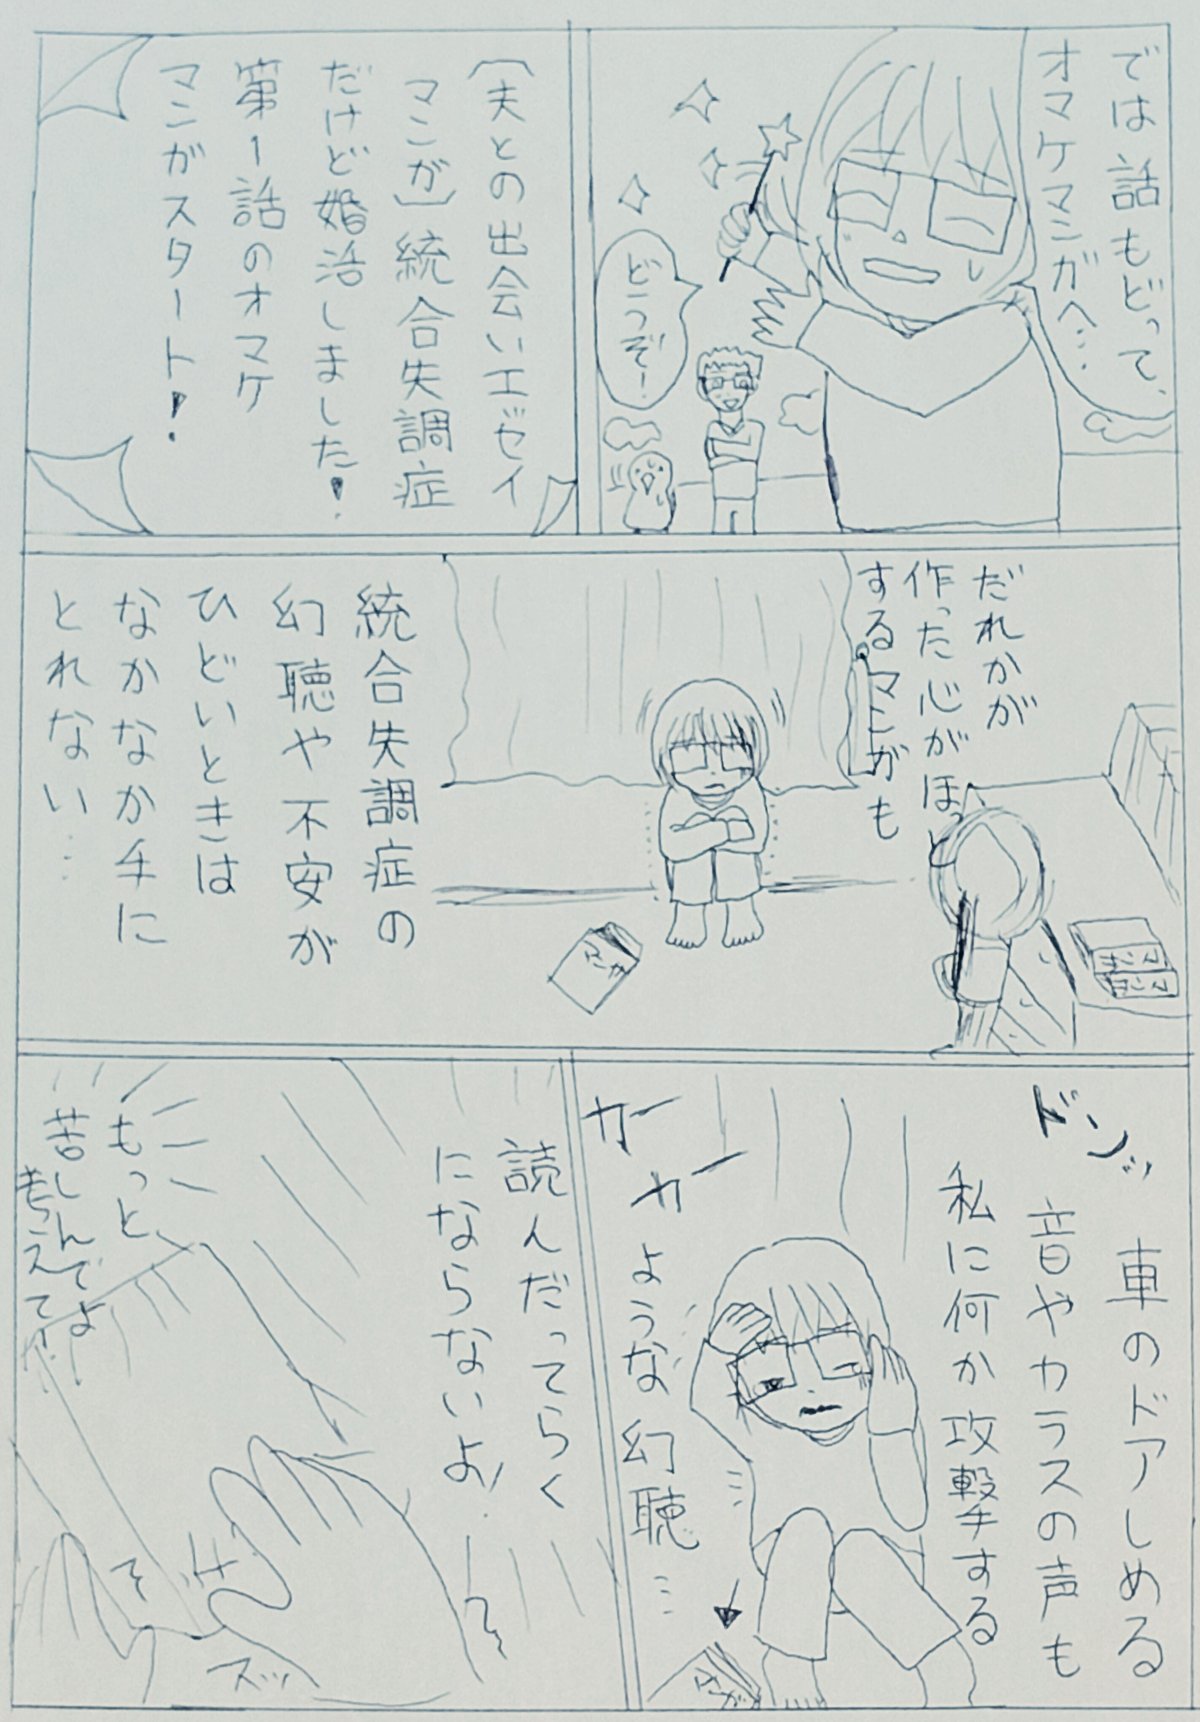 では話もどって、
オマケマンガへ…
どうぞー!
〔夫との出会いエッセイ
マンガ〕統合失調症
だけど婚活しました!
第1話のオマケ
マンガスタート!
だれかが
作った心がほっと
するマンガも
統合失調症の
幻聴や不安が
ひどいときは
なかなか手に
とれない…
マンガ
ドンッ
車のドアしめる
音やカラスの声も
私に何か攻撃する
ような幻聴…
カー
カー
マンガ
読んだってらく
にならないよ!
もっと
苦しんでよ
考えてー!
スッ